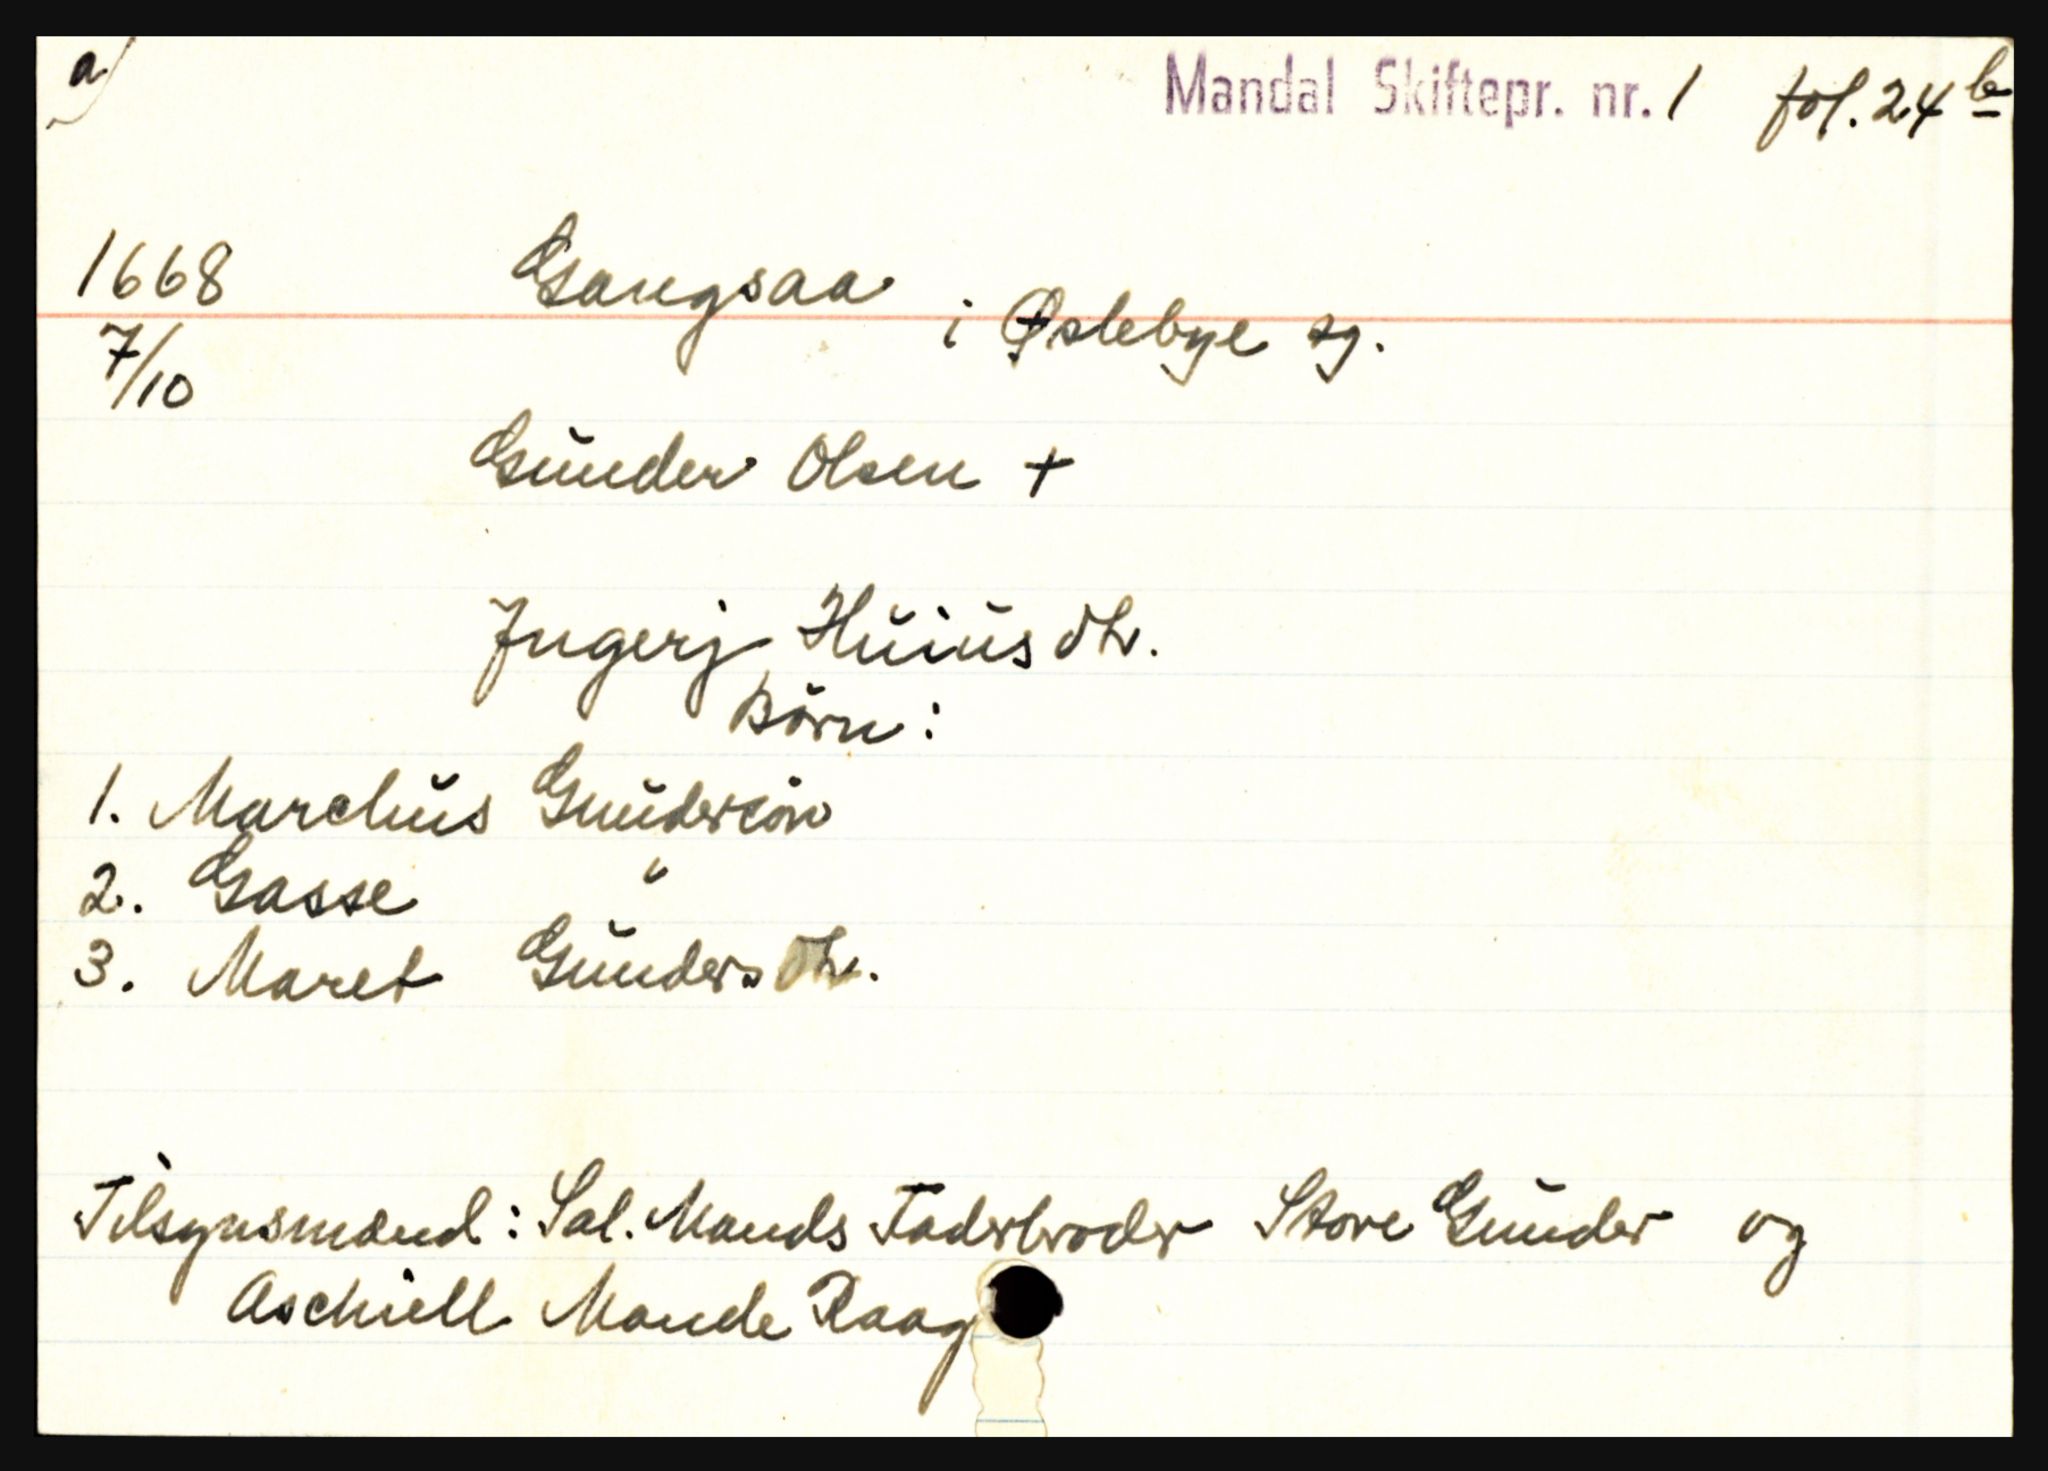 a)
Mandal Skiftepr. nr. 1 fol. 24 b
1668 Gangsaa i Øslebye sg.
7/10
Gŭnder Olsen +
Jngerj Hŭiŭsdtr.
Børn:
1. Marchŭs Gŭndersön
2. Gasse "
3. Maret Gŭndersdtr.
Tilsynsmænd: Sal. Mands Faderbroder Store Gŭnder og
Aschiell Mande Raag